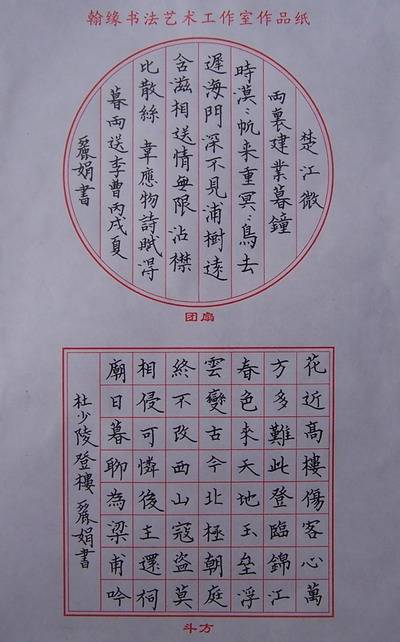 翰缘书法艺术工作室作品纸
楚江微
雨裏建業暮鐘
時漠〻帆来重冥〻鳥去
遲海門深不見浦樹遠
含滋相送情無限沾襟
比散絲 韋應物詩賦得
暮雨送李曹丙戌夏
麗娟書
团扇
花近髙樓傷客心萬
方多難此登臨錦江
春色来天地玉壘浮
雲變古今北極朝庭
終不改西山寇盜莫
相侵可憐後主還祠
廟日暮聊為梁甫吟
杜少陵登樓 麗娟書
斗方